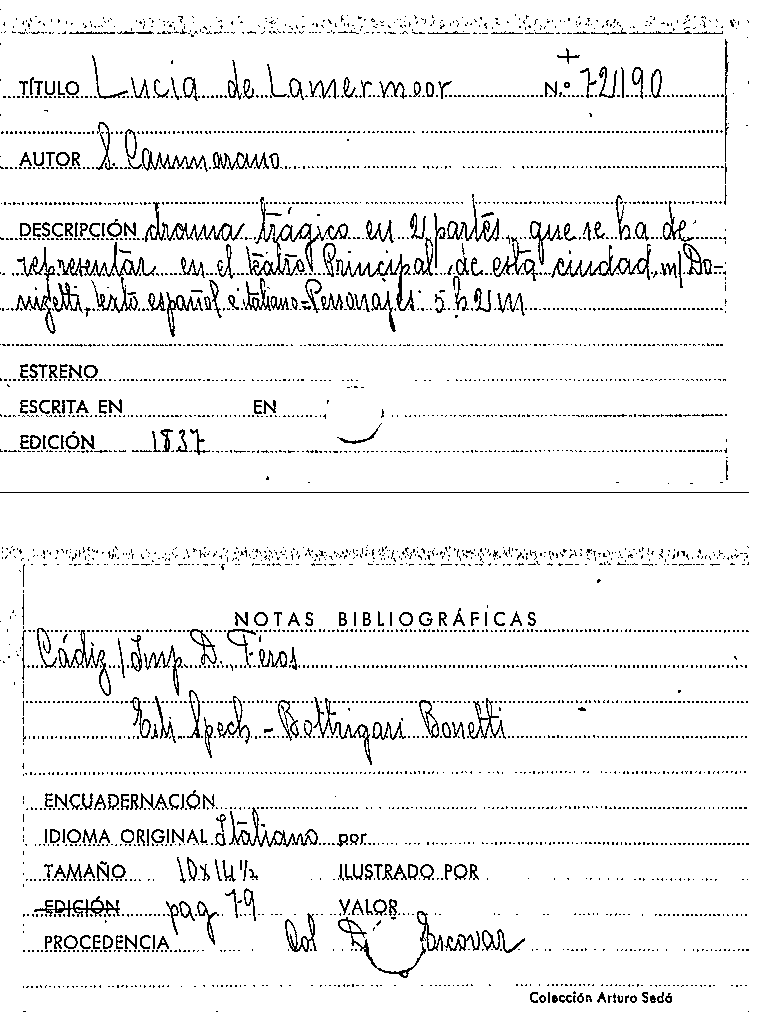 TÍTULO Lucia de Lamermoor N.º 721190
AUTOR S. Cammarano
DESCRIPCIÓN drama trágico en 2 partes, que se ha de
representar en el teatro Principal de esta ciudad, m/ Do-
nizetti, texto español e italiano = Personajes: 5 h 2 m
ESTRENO
ESCRITA EN EN
EDICIÓN 1837
NOTAS BIBLIOGRÁFICAS
Cádiz / Imp D. Féros
Spech - Bottrigari Bonetti
ENCUADERNACIÓN
IDIOMA ORIGINAL Italiano por
TAMAÑO 10x14½ ILUSTRADO POR
EDICIÓN pag 79 VALOR
PROCEDENCIA Col Escovar
Colección Arturo Sedó